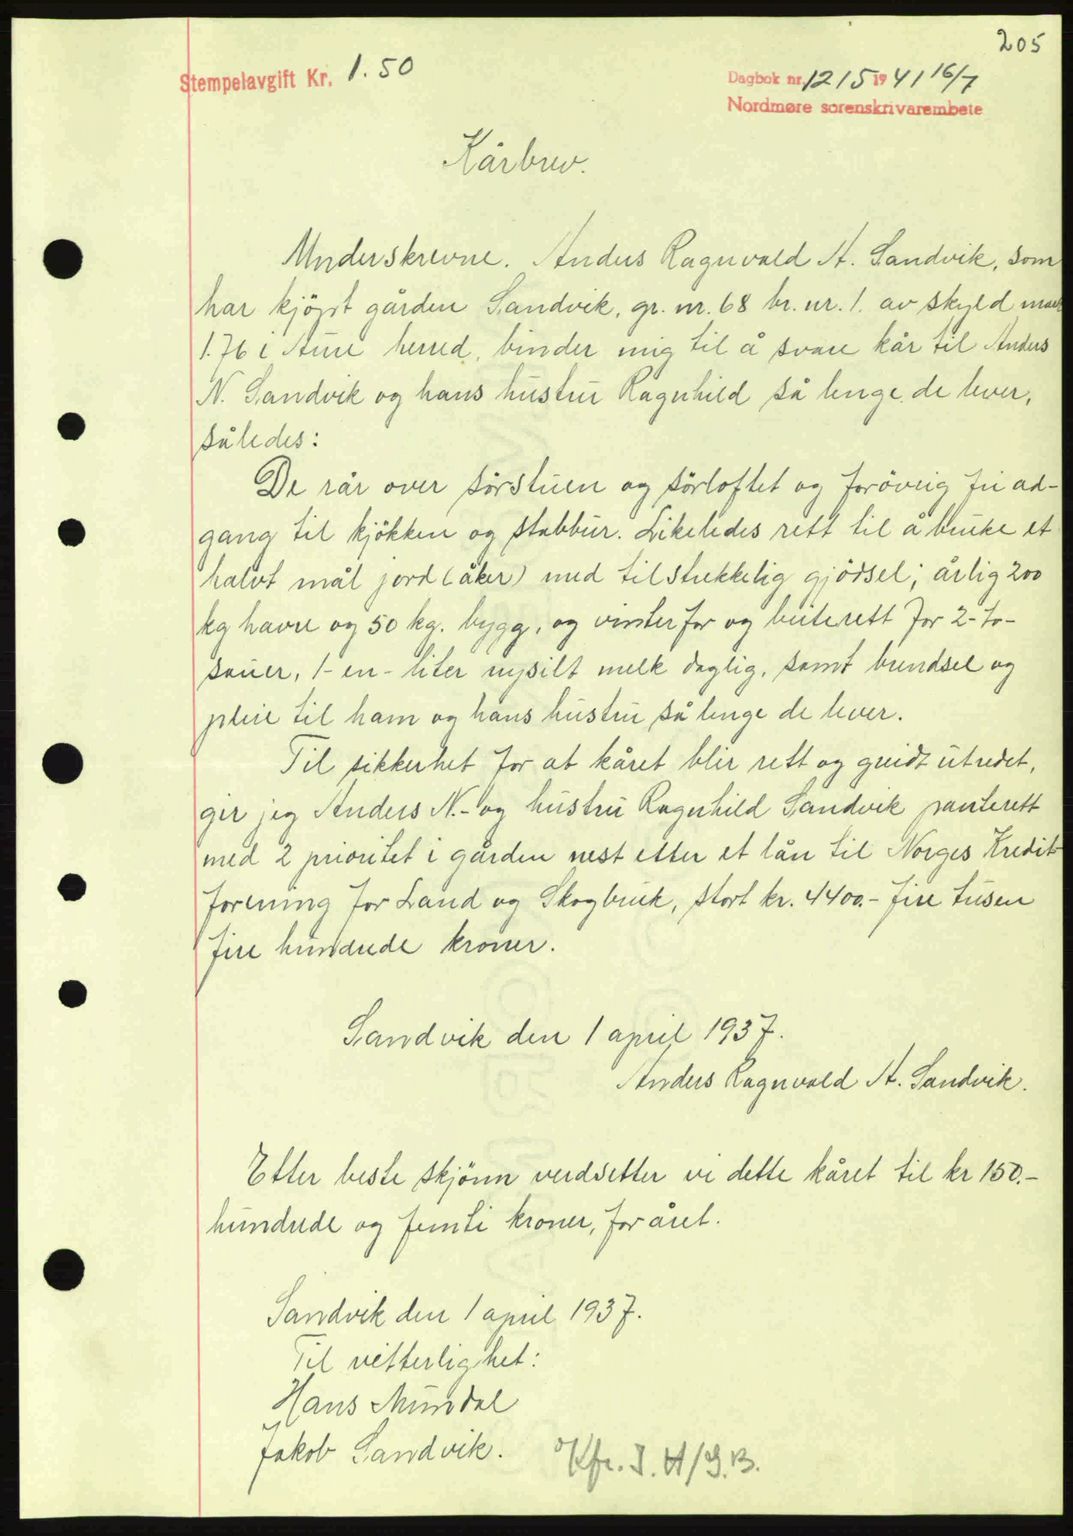 205
Stempelavgift Kr. 1.50
Dagbok nr. 1215 1941 16/7
Nordmøre sorenskrivarembete
Kårbrev.
Underskrevne. Anders Ragnvald A. Sandvik, som
har kjöpt gården Sandvik, gr. nr. 68 br. nr. 1. av skyld mark
1.76 i Aure herred, binder mig til å svare kår til Anders
N. Sandvik og hans hustru Ragnhild så lenge de lever,
således:
De rår over sörstuen og sörloftet og forövrig fri ad-
gang til kjökken og stabbur. Likeledes rett til å bruke et
halvt mål jord (åker) med tilstrekkelig gjödsel; årlig 200
kg havre og 50 kg. bygg, og vinterfor og beiterett for 2-to-
sauer, 1-en-liter nysilt melk daglig, samt brendsel og
pleie til ham og hans hustru så lenge de lever.
Til sikkerhet for at kåret blir rett og greidt utredet,
gir jeg Anders N.- og hustru Ragnhild Sandvik panterett
med 2 prioritet i gården nest etter et lån til Norges Kredit-
forening for Land og Skogbruk, stort kr. 4400.- fire tusen
fire hundrede kroner.
Sandvik den 1 april 1937.
Anders Ragnvald A. Sandvik.
Etter beste skjönn verdsetter vi dette kåret til kr 150.-
hundrede og femti kroner, for året.
Sandvik den 1 april 1937.
Til vitterlighet:
Hans Mundal
Jakob Sandvik.
Kfr. I. H/G.B.